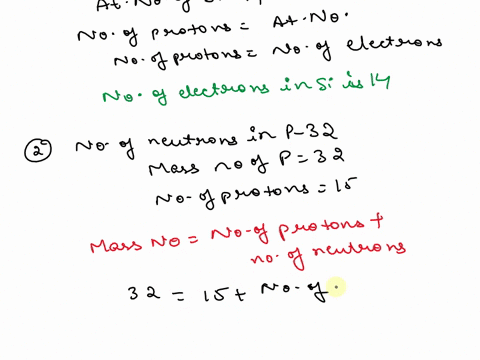 At. No of Si
No. of protons = At. No.
No. of protons = No. of electrons
No. of electrons in Si is 14
2 No. of neutrons in P-32
Mass no of P = 32
No. of protons = 15
Mass No = No. of protons +
no. of neutrons
32 = 15 + No. of